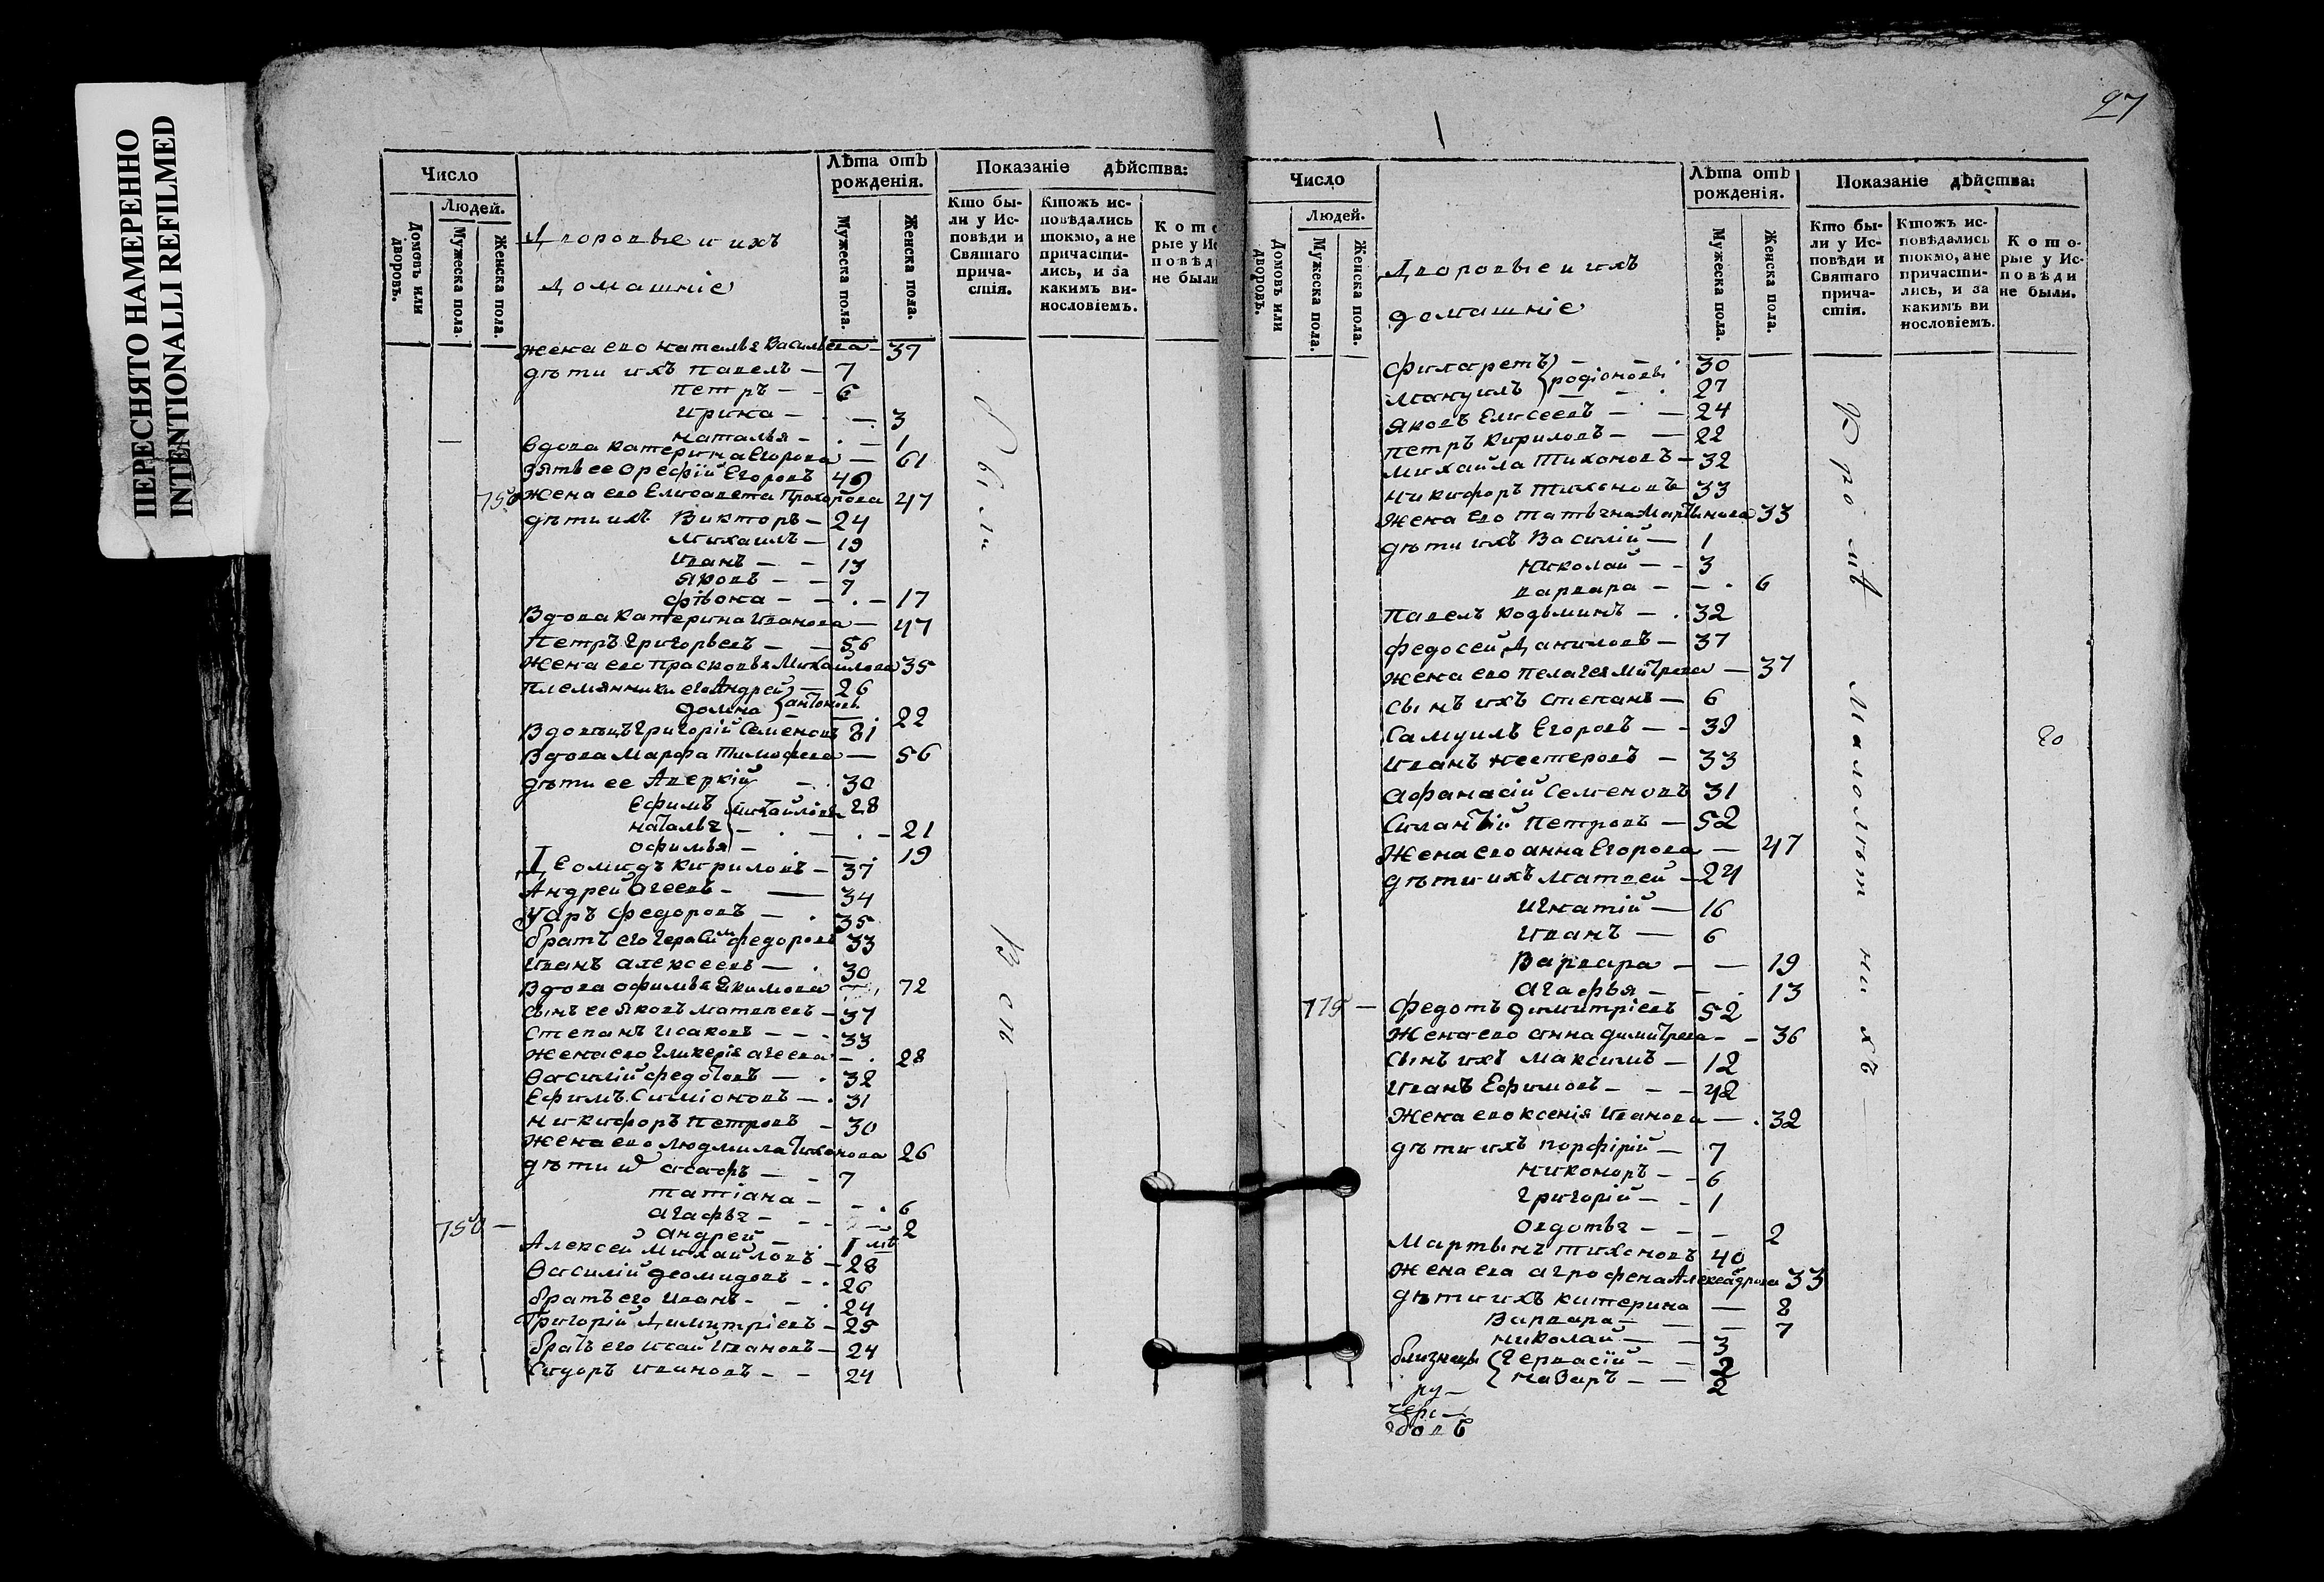 ПЕРЕСНЯТО НАМЕРЕННО
INTENTIONALLI REFILMED
Число
Людей.
Домовъ или дворовъ.
Мужеска пола.
Женска пола.
Дворовые и ихъ
домашніе
Лѣта отъ рожденія.
Мужеска пола.
Женска пола.
Показаніе дѣйства:
Кто бы-
ли у Ис-
повѣди и
Святаго
прича-
стія.
Ктожъ ис-
повѣдались
токмо, а не
причасти-
лись, и за
какимъ ви-
нословіемъ.
Кото
рые у Ис
повѣд
не были
жена его наталья Васильева — 37
дѣти ихъ павелъ — 7
петръ — 6
ирина — 3
наталья — 1
вдова катерина Егорова — 61
зять ее Орефій Егоровъ 49
жена его Елисавета Прохорова 47
дѣти ихъ Викторъ — 24
Михаилъ — 19
иванъ — 13
яковъ — 7
фіона — 17
Вдова катерина иванова — 47
Петръ григорьевъ — 56
жена его прасковья Михайлова 35
племянники его Андрей — 26
домна антоновы 22
Вдовецъ григорій Семеновъ 81
Вдова Марфа Тимофеева — 56
дѣти ее Аверкій — 30
Ефимъ Михайловы 28
наталья — 21
офимья — 19
Деомидъ кириловъ — 37
Андрей агеевъ — 34
Уаръ федоровъ — 35
братъ его герасимъ федоровъ 33
иванъ алексеевъ — 30
Вдова офимья якимова 72
сынъ ее яковъ матвеевъ — 37
Степанъ исаковъ — 33
жена его гликерія агеева — 28
василій федотовъ — 32
Ефимъ Симіоновъ — 31
никифоръ петровъ — 30
жена его людмила тихонова 26
дѣти асафъ — 7
татіана — 6
агафья — 2
750 —
андрей — 1
Алексей Михайловъ — 28
василій деомидовъ — 26
братъ его иванъ — 24
Григорій Димитріевъ — 25
братъ его исай ивановъ — 24
Сидоръ ивановъ — 24
27
Число
Людей.
Домовъ или дворовъ.
Мужеска пола.
Женска пола.
Дворовые и ихъ
домашніе
Лѣта отъ рожденія.
Мужеска пола.
Женска пола.
Показаніе дѣйства:
Кто бы-
ли у Ис-
повѣди и
Святаго
прича-
стія.
Ктожъ ис-
повѣдались
токмо, а не
причасти-
лись, и за
какимъ ви
нословіемъ.
Кото-
рые у Ис-
повѣди
не были.
филаретъ — 30
мануилъ родіоновы 27
яковъ Елисеевъ — 24
петръ кириловъ — 22
михайла Тихоновъ — 32
никифоръ тихоновъ 33
жена его татьяна Мартынова 33
дѣти ихъ Василій — 1
николай — 3
варвара — 6
павелъ кодьминъ — 32
федосей Даниловъ — 37
жена его пелагея Митрева — 37
сынъ ихъ степанъ — 6
Самуилъ Егоровъ — 39
иванъ нестеровъ — 33
афанасій Семеновъ 31
Силантій петровъ — 52
жена его анна Егорова — 47
дѣти ихъ матвей — 24
игнатій — 16
иванъ — 6
Варвара — 19
агафья — 13
775 — федотъ димитріевъ 52
жена его анна димитрева — 36
сынъ ихъ максимъ — 12
иванъ Ефимовъ — 42
жена его ксенія иванова — 32
дѣти ихъ порфірій — 7
никоноръ — 6
григорій — 1
овдотья — 2
Мартынъ тихоновъ 40
жена ева агрофена Александрова 33
дѣти ихъ катерина — 8
Варвара — 7
николай — 3
близнецы гервасій — 2
назаръ — 2